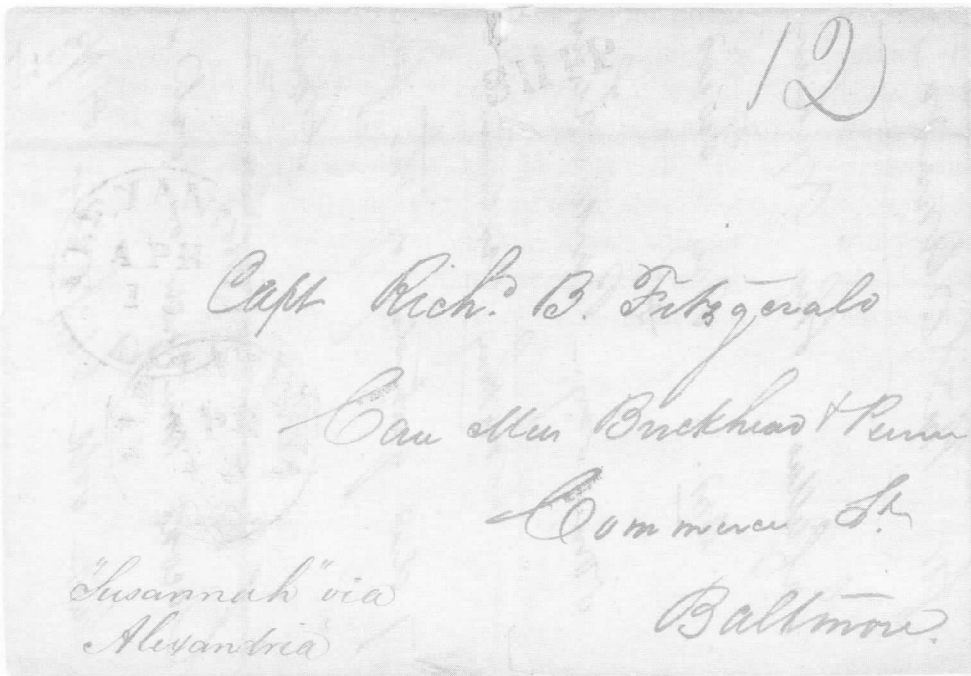 12
Capt Richd. B. Fitzgerald
Care Birckhead & 
Commerce St.
Baltimore.
"Susannah" via
Alexandria